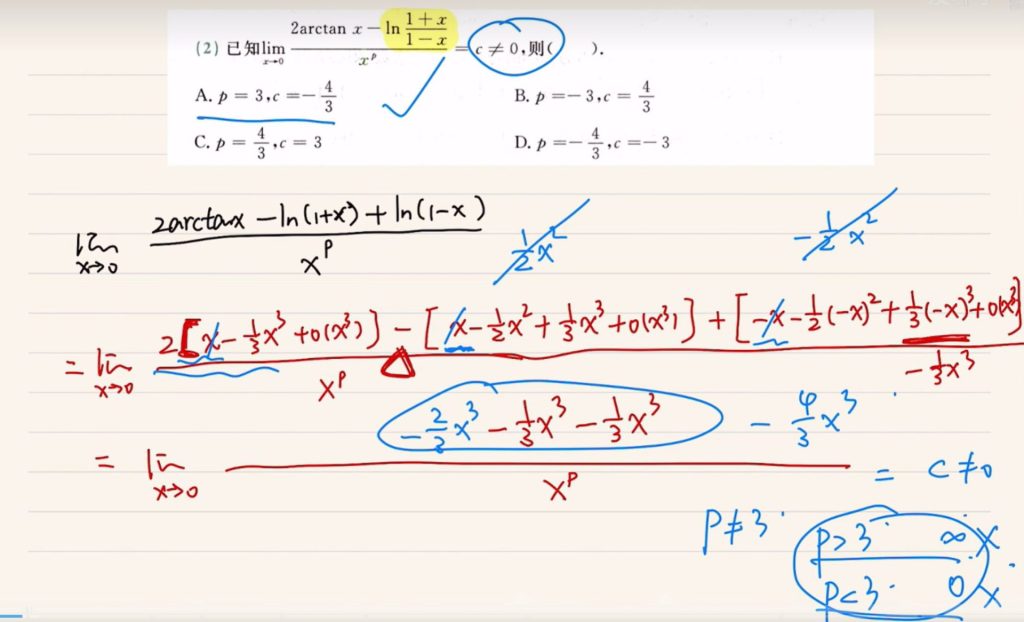 (2) 已知lim_{x→0} (2arctan x − ln (1+x)/(1−x)) / x^p = c ≠ 0,则( ).
A. p = 3,c = −4/3 B. p = −3,c = 4/3
C. p = 4/3,c = 3 D. p = −4/3,c = −3
lim_{x→0} (2arctanx − ln(1+x) + ln(1−x)) / x^p
1/2 x^2 −1/2 x^2
= lim_{x→0} (2[x − 1/3 x^3 + o(x^3)] − [x − 1/2 x^2 + 1/3 x^3 + o(x^3)] + [−x − 1/2 (−x)^2 + 1/3 (−x)^3 + o(x^3)]) / x^p
−1/3 x^3
= lim_{x→0} (−2/3 x^3 − 1/3 x^3 − 1/3 x^3) / x^p = c ≠ 0
−4/3 x^3
P≠3
P>3 ∞ ×
P<3 0 ×